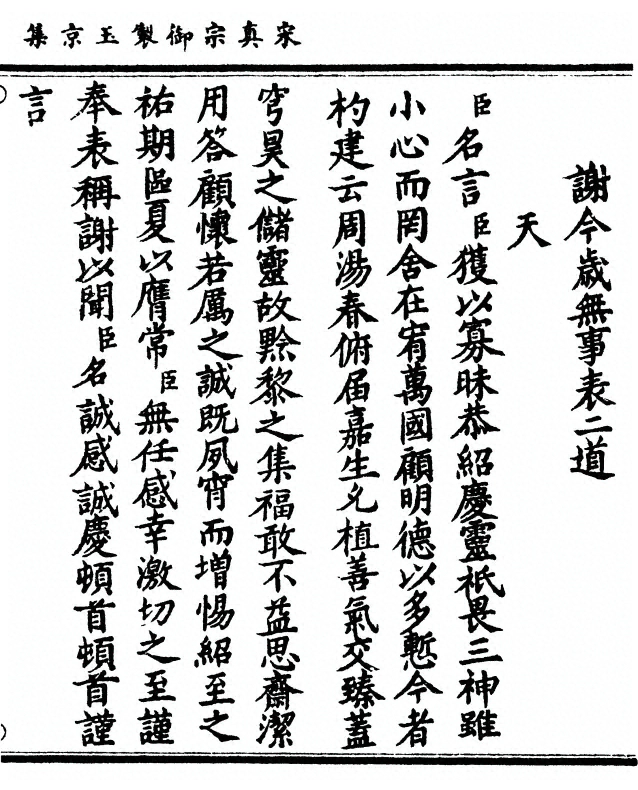 宋真宗御製玉京集
謝今歲無事表二道
天
臣名言臣獲以寡昧恭紹慶靈祇畏三神雖
小心而罔舍在宥萬國顧明德以多慙今者
杓建云周湯春俯屆嘉生允植善氣交臻蓋
穹昊之儲靈故黔黎之集福敢不益思齋潔
用答顧懷若厲之誠既夙宵而增惕紹至之
祐期區夏以膺常臣無任感幸激切之至謹
奉表稱謝以聞臣名誠感誠慶頓首頓首謹
言